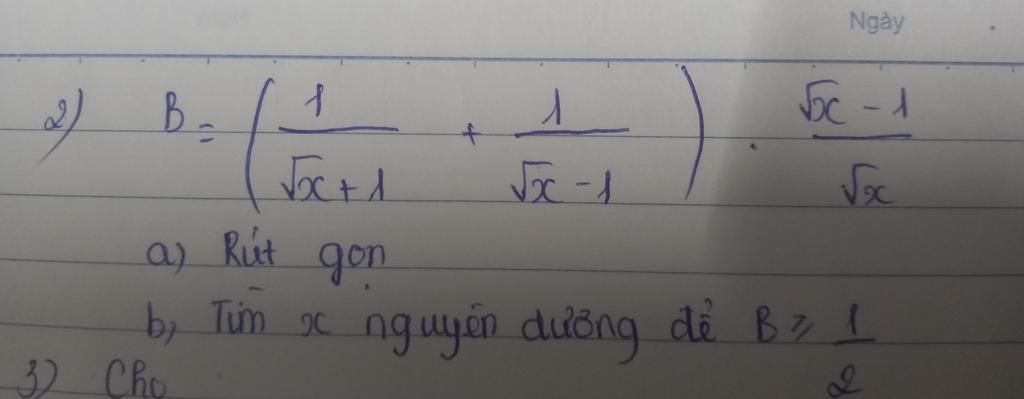 Ngày
2) B = ( 1/(√x + 1) + 1/(√x - 1) ) . (√x - 1)/√x
a) Rút gọn
b, Tìm x nguyên dương để B ≥ 1/2
3) Cho